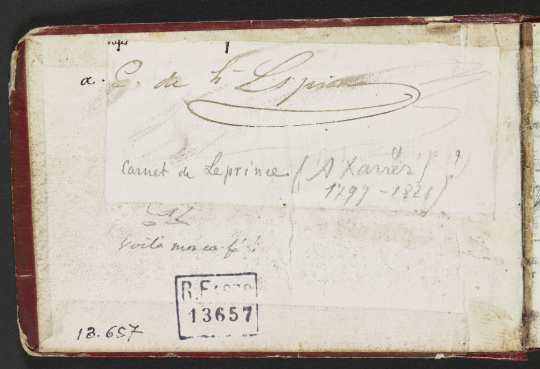 a. C. de
Carnet de Leprince (A Xavier)
1799-1826)
Voilà mon café
R.F
13657
13.657